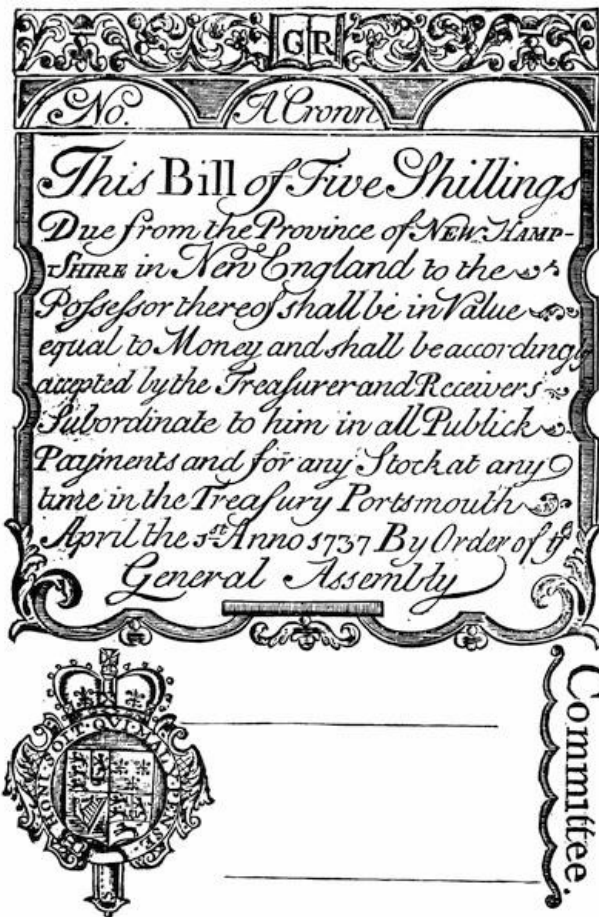 G R
No. A Crown
This Bill of Five Shillings
Due from the Province of NEW HAMP-
SHIRE in New England to the
Possessor thereof shall be in Value
equal to Money and shall be accordingly
accepted by the Treasurer and Receivers
Subordinate to him in all Publick
Payments and for any Stock at any
time in the Treasury Portsmouth
April the 1st Anno 1737 By Order of ye
General Assembly
HONI·SOIT·QUI·MAL·Y·PENSE
Committee.